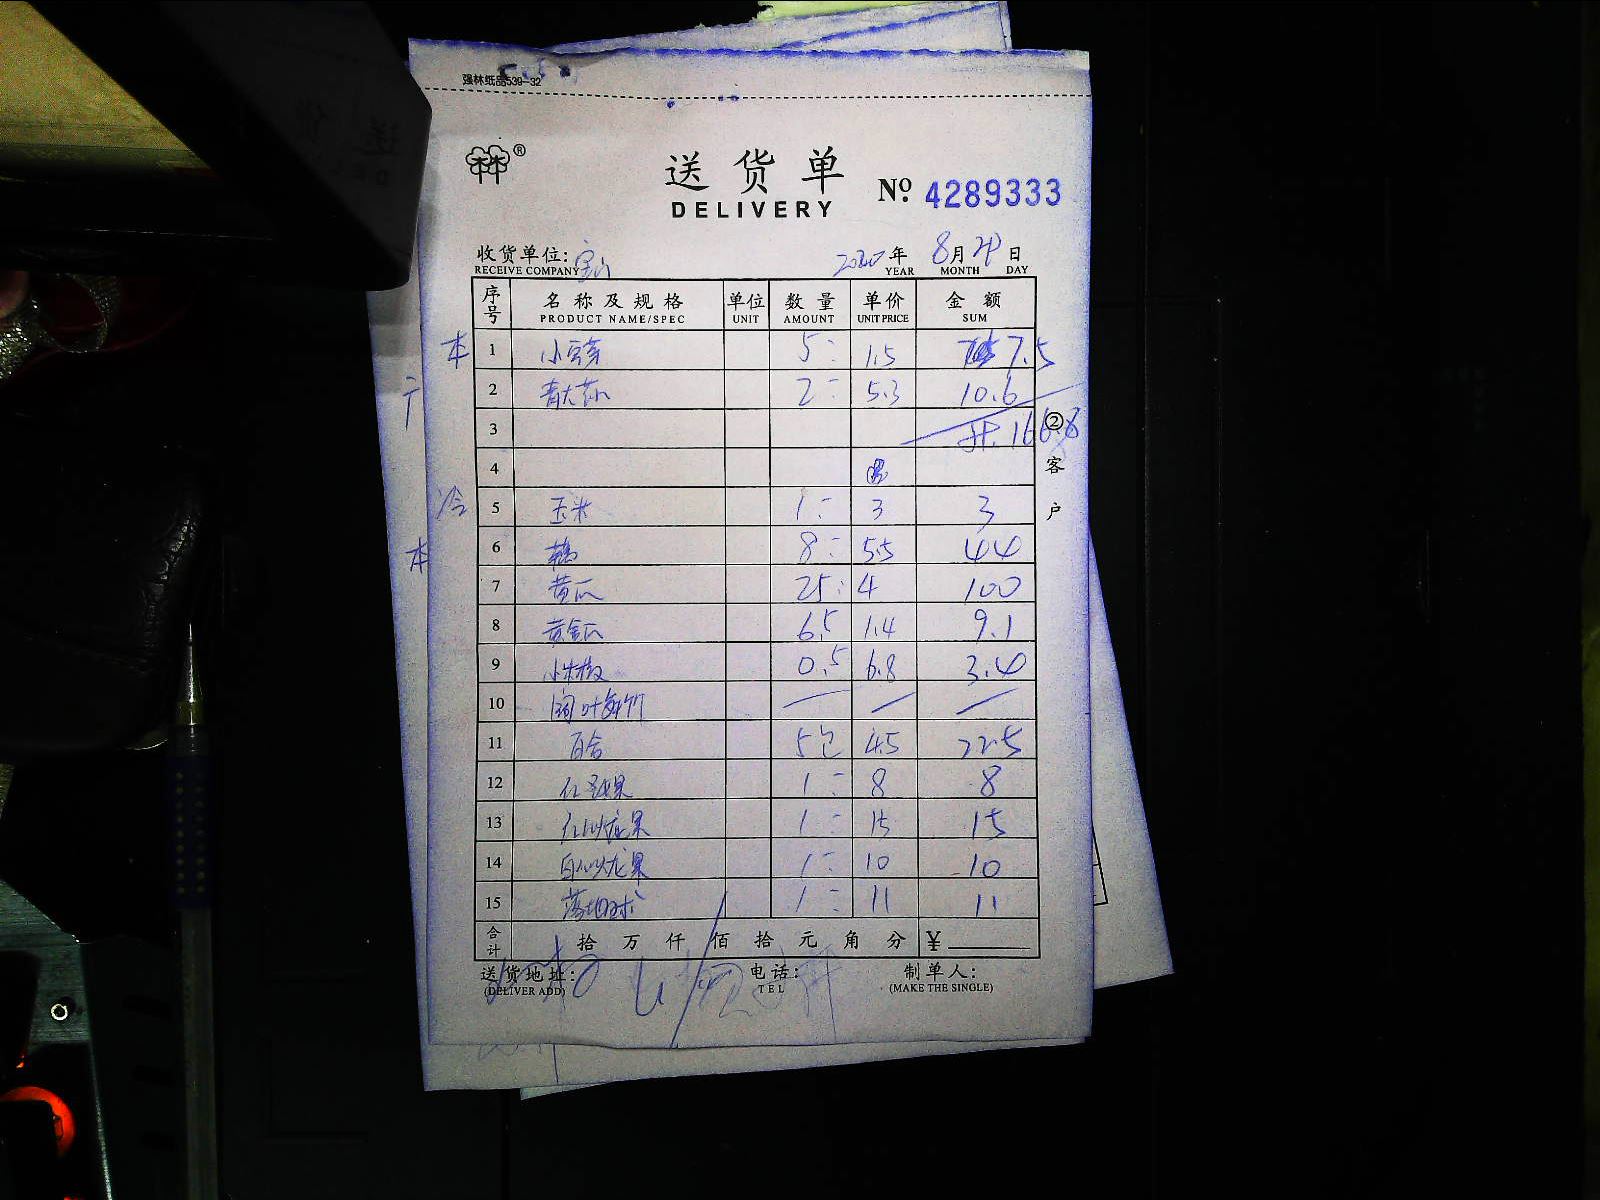 强林纸品539-32
林林®
送货单
DELIVERY
No. 4289333
收货单位:
RECEIVE COMPANY
年 8月 日
YEAR MONTH DAY
序号 名称及规格 单位 数量 单价 金额
PRODUCT NAME/SPEC UNIT AMOUNT UNIT PRICE SUM
本 1 小豆芽 5 1.5 7.5
2 青大 2 5.3 10.6
3 166.8
4
冷 5 玉米 1 3 3
本 6 8 5.5 44
7 黄瓜 25 4 100
8 黄金瓜 6.5 1.4 9.1
9 小米椒 0.5 6.8 3.4
10 阔叶 竹
11 百合 5包 4.5 22.5
12 红 果 1 8 8
13 红心火龙果 1 15 15
14 白心火龙果 1 10 10
15 1 11 11
合计 拾 万 仟 佰 拾 元 角 分 ¥
送货地址: 电话: 制单人:
(DELIVER ADD) TEL (MAKE THE SINGLE)
②客户